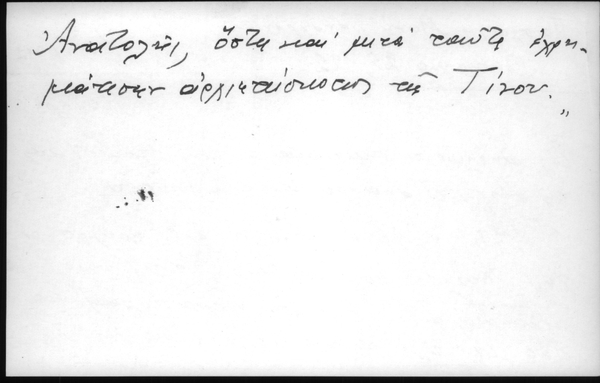 Ἀνατολῆς, ὅστις καὶ μετὰ ταῦτα ἐχρη-
μάτισεν ἀρχιεπίσκοπος τῆς Τίνου.
"